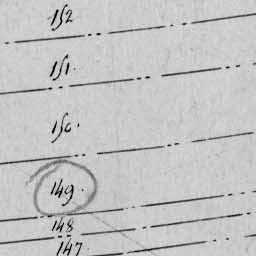 152
151.
150.
149.
148
147.